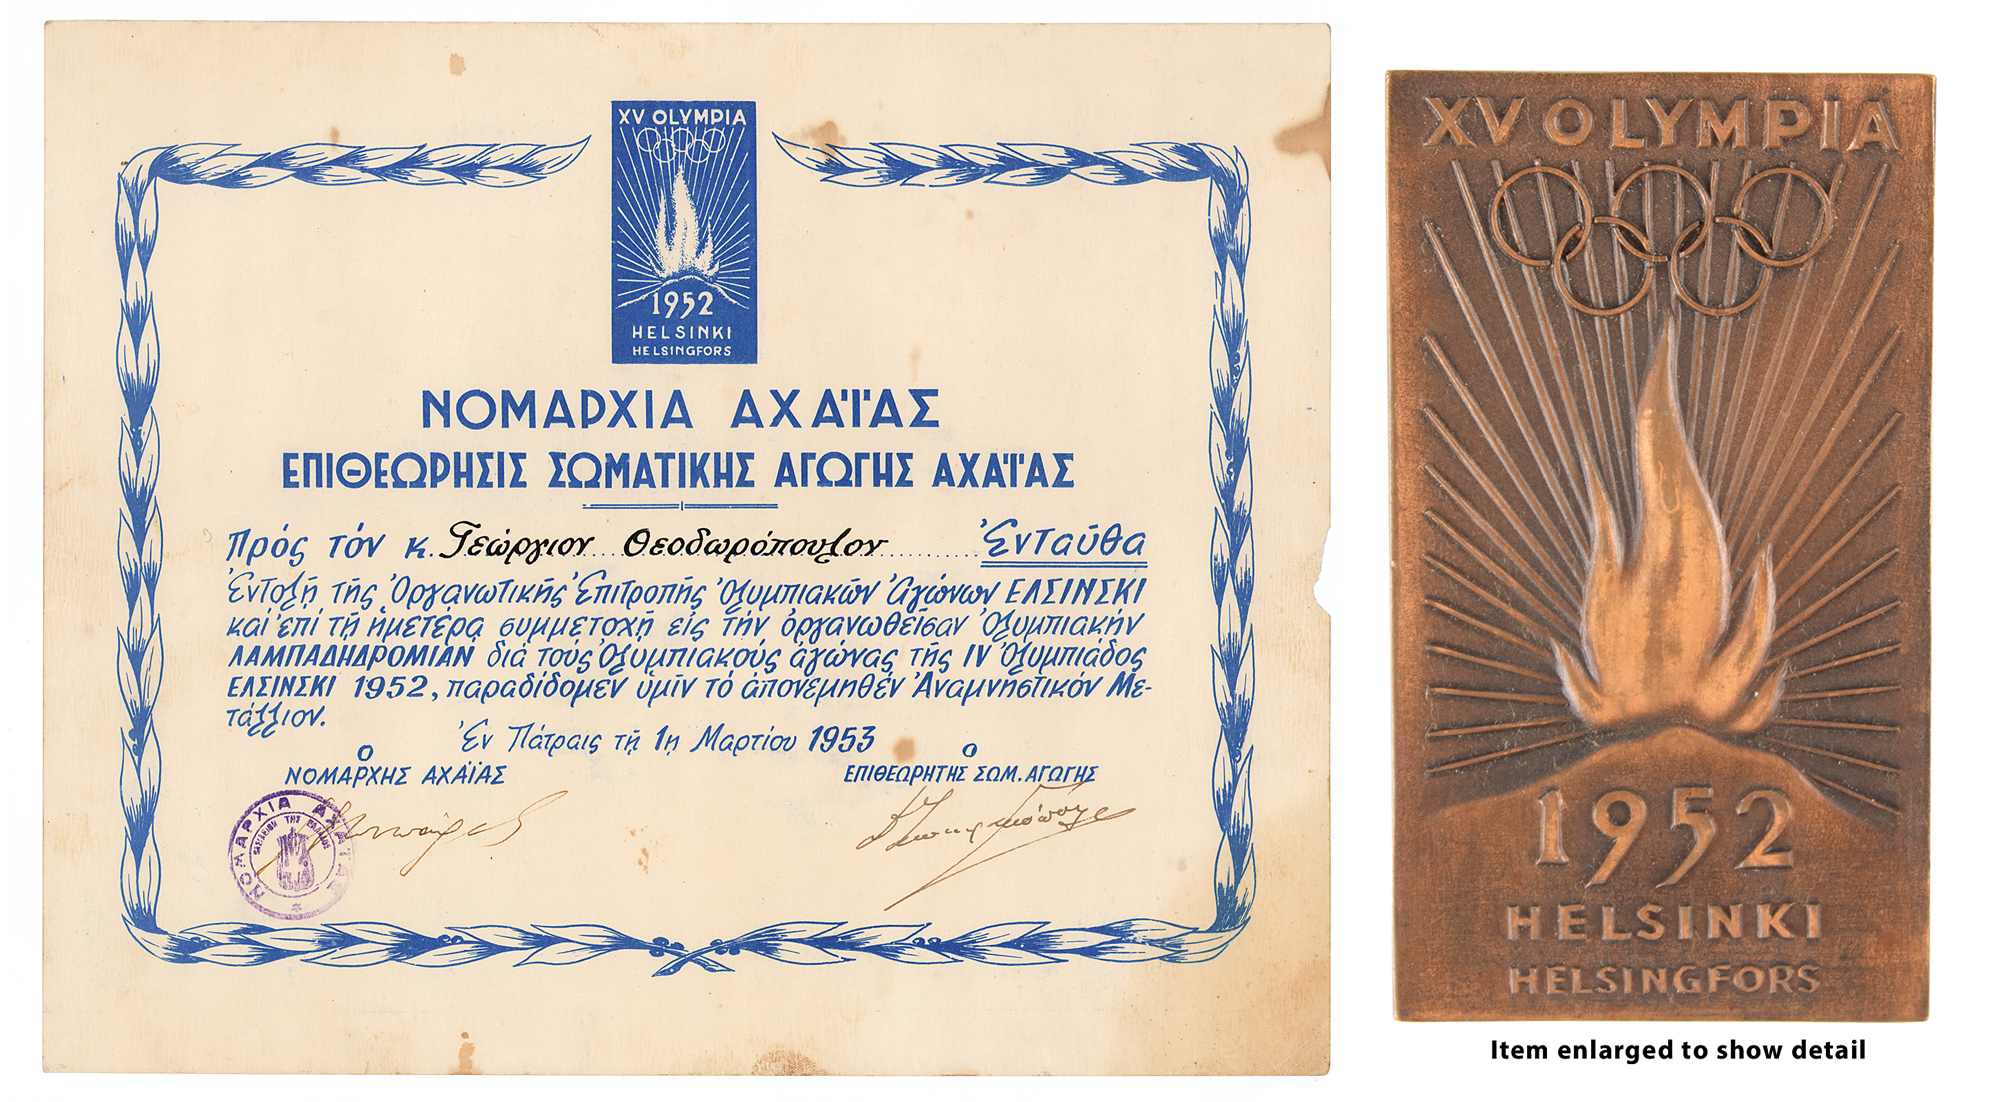 XV OLYMPIA
1952
HELSINKI
HELSINGFORS
ΝΟΜΑΡΧΙΑ ΑΧΑΪΑΣ
ΕΠΙΘΕΩΡΗΣΙΣ ΣΩΜΑΤΙΚΗΣ ΑΓΩΓΗΣ ΑΧΑΪΑΣ
Πρός τόν κ. Γεώργιον Θεοδωρόπουλον Ἐνταῦθα
Ἐντολῇ τῆς Ὀργανωτικῆς Ἐπιτροπῆς Ὀλυμπιακῶν Ἀγώνων ΕΛΣΙΝΣΚΙ
καί ἐπί τῇ ἡμετέρᾳ συμμετοχῇ εἰς τήν ὀργανωθεῖσαν Ὀλυμπιακήν
ΛΑΜΠΑΔΗΔΡΟΜΙΑΝ διά τούς Ὀλυμπιακούς ἀγώνας τῆς IV Ὀλυμπιάδος
ΕΛΣΙΝΣΚΙ 1952, παραδίδομεν ὑμῖν τό ἀπονεμηθέν Ἀναμνηστικόν Με-
τάλλιον.
Ἐν Πάτραις τῇ 1ῃ Μαρτίου 1953
Ο
ΝΟΜΑΡΧΗΣ ΑΧΑΪΑΣ
Ο
ΕΠΙΘΕΩΡΗΤΗΣ ΣΩΜ. ΑΓΩΓΗΣ
ΝΟΜΑΡΧΙΑ ΑΧΑΪΑΣ
ΒΑΣΙΛΕΙΟΝ ΤΗΣ ΕΛΛΑΔΟΣ
XV OLYMPIA
1952
HELSINKI
HELSINGFORS
Item enlarged to show detail